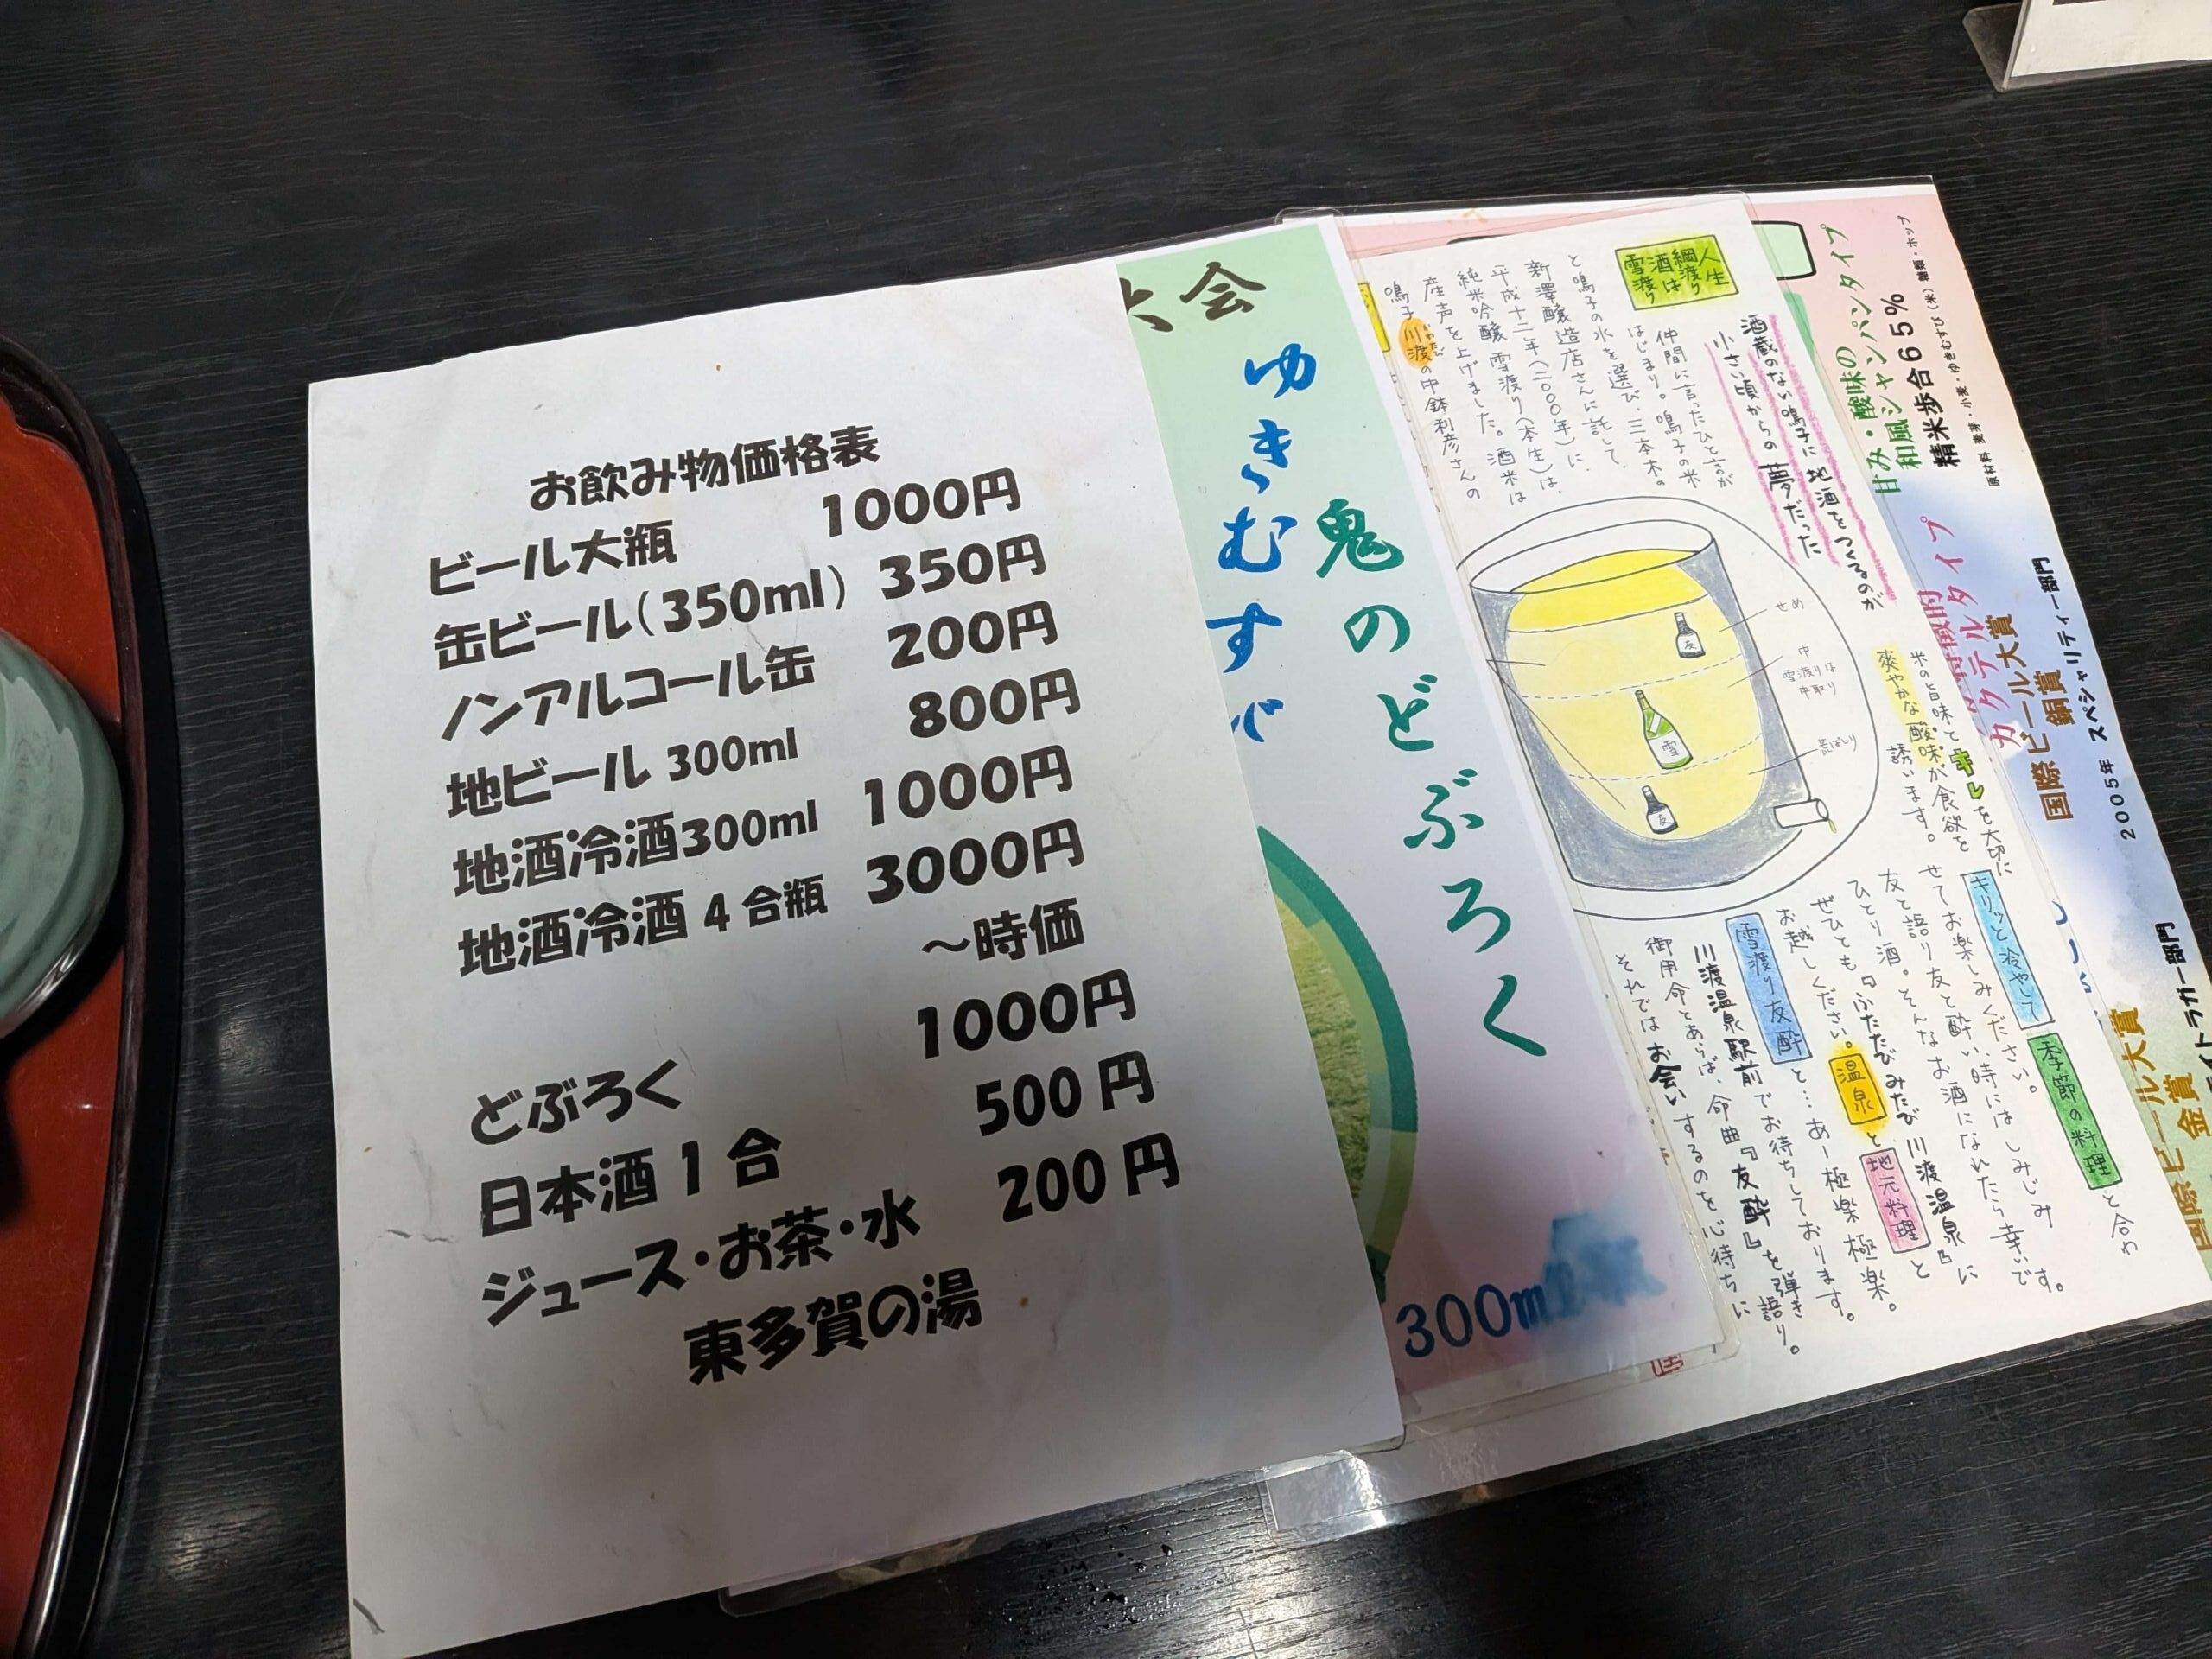 お飲み物価格表
ビール大瓶 1000円
缶ビール(350ml) 350円
ノンアルコール缶 200円
地ビール 300ml 800円
地酒冷酒300ml 1000円
地酒冷酒 4 合瓶 3000円
～時価
どぶろく 1000円
日本酒 1 合 500 円
ジュース・お茶・水 200 円
東多賀の湯
大会
鬼のどぶろく
ゆきむすび
300m
人生
綱渡り
酒は
雪渡り
酒蔵のない鳴子に地酒をつくるのが
小さい頃からの夢だった
仲間に言ったひと言が
はじまり。鳴子の米
と鳴子の水を選び、三本木の
新澤醸造店さんに託して、
平成十二年(二〇〇〇年)に、
純米吟醸 雪渡り(本生)は、
産声を上げました。酒米は
鳴子川渡の中鉢利彦さんの
かわたび
せめ
中
雪渡りは
中取り
荒ばしり
友
雪
友
米の旨味とキレを大切に
爽やかな酸味が食欲を
誘います。
キリッと冷やして
季節の料理と合わ
せてお楽しみください。
友と語り友と酔い、時にはしみじみ
ひとり酒。そんなお酒になれたら幸いです。
ぜひとも『ふたたびみたび川渡温泉』に
お越しください。温泉と地元料理と
雪渡り友酔と…あー極楽極楽。
川渡温泉駅前でお待ちしております。
御用命とあらば、命曲『友酔』を弾き語り。
それではお会いするのを心待ちに
甘み・酸味の
和風シャンパンタイプ
精米歩合65%
原材料 麦芽・小麦・ゆきむすび(米)糖類・ホップ
カクテルタイプ
国際ビール大賞
銅賞
2005年 スペシャリティー部門
国際ビール大賞
金賞
イトラガー部門